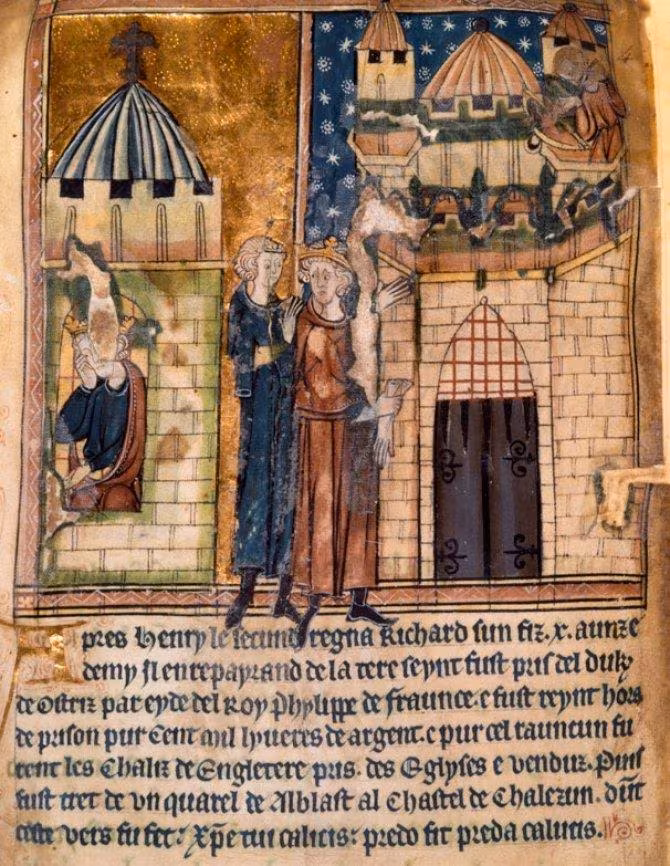 pres henry le secund regna Richard sun fiz .x. aunz e
demy si en repayrand de la tere seynt fust pris del duk
de Ostriz par eyde del Roy Phylippe de fraunce. e fust reynt hors
de prison pur Cent mil lyueres de argent. e pur cel raunCun fu
rent les Chaliz de Engletere pris. des Eglyses e venduz. Puis
fust tret de vn quarel de Alblast al Chastel de Chalezun. dunt
ceste vers fu fet: xp̄e tui calicis: predo fit preda calucis.